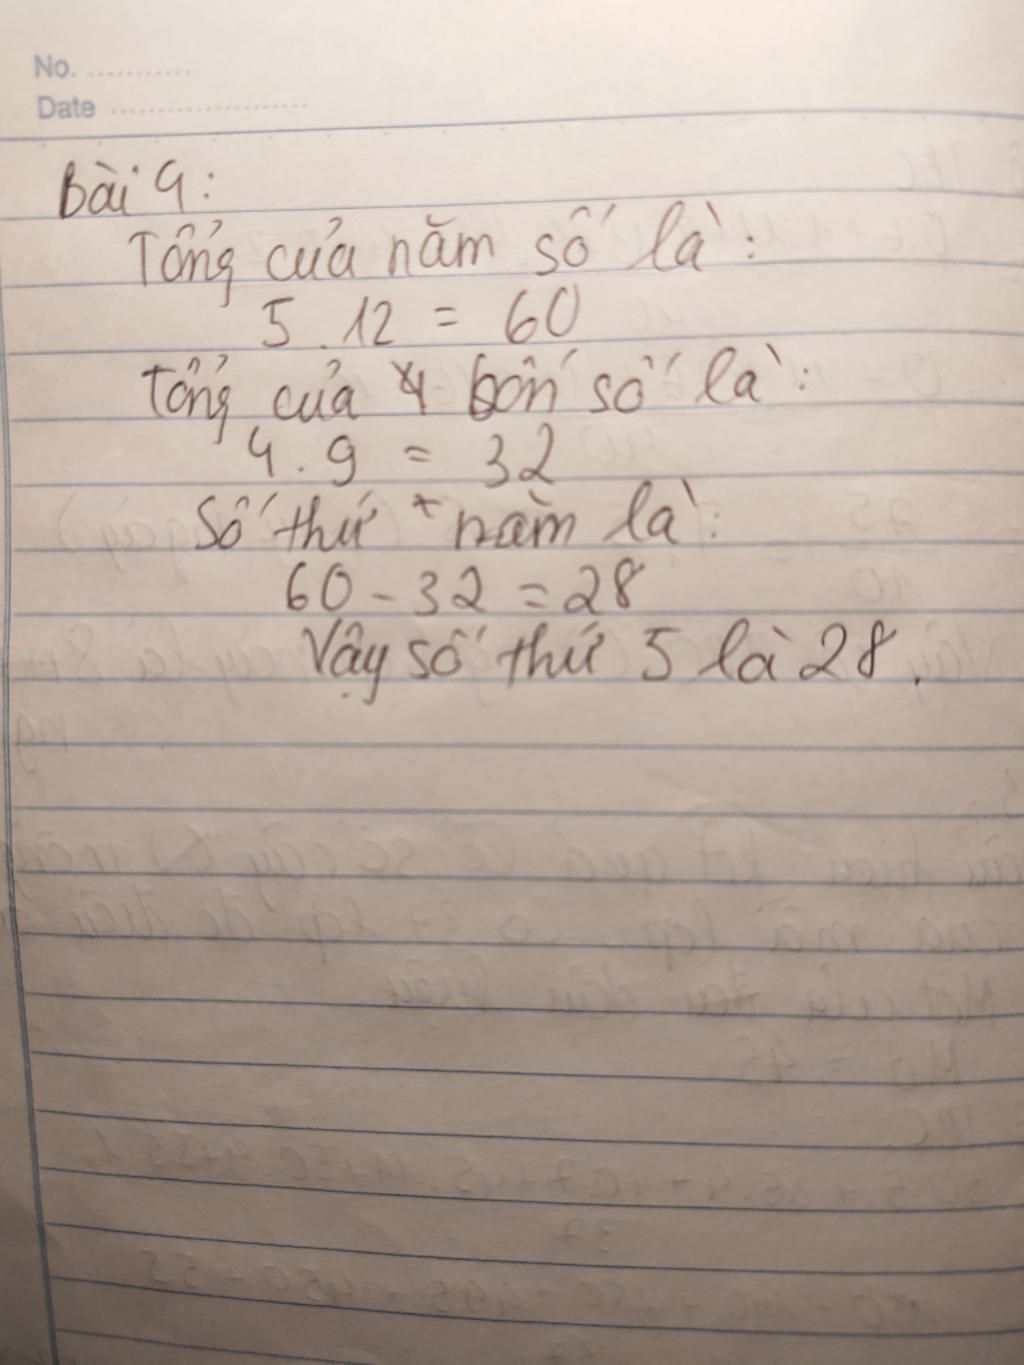 No. ............
Date ........................
Bài 4:
Tổng của năm số là:
5.12 = 60
Tổng của 4 bốn số là:
4.9 = 32
Số thứ năm là:
60 - 32 = 28
Vậy số thứ 5 là 28.